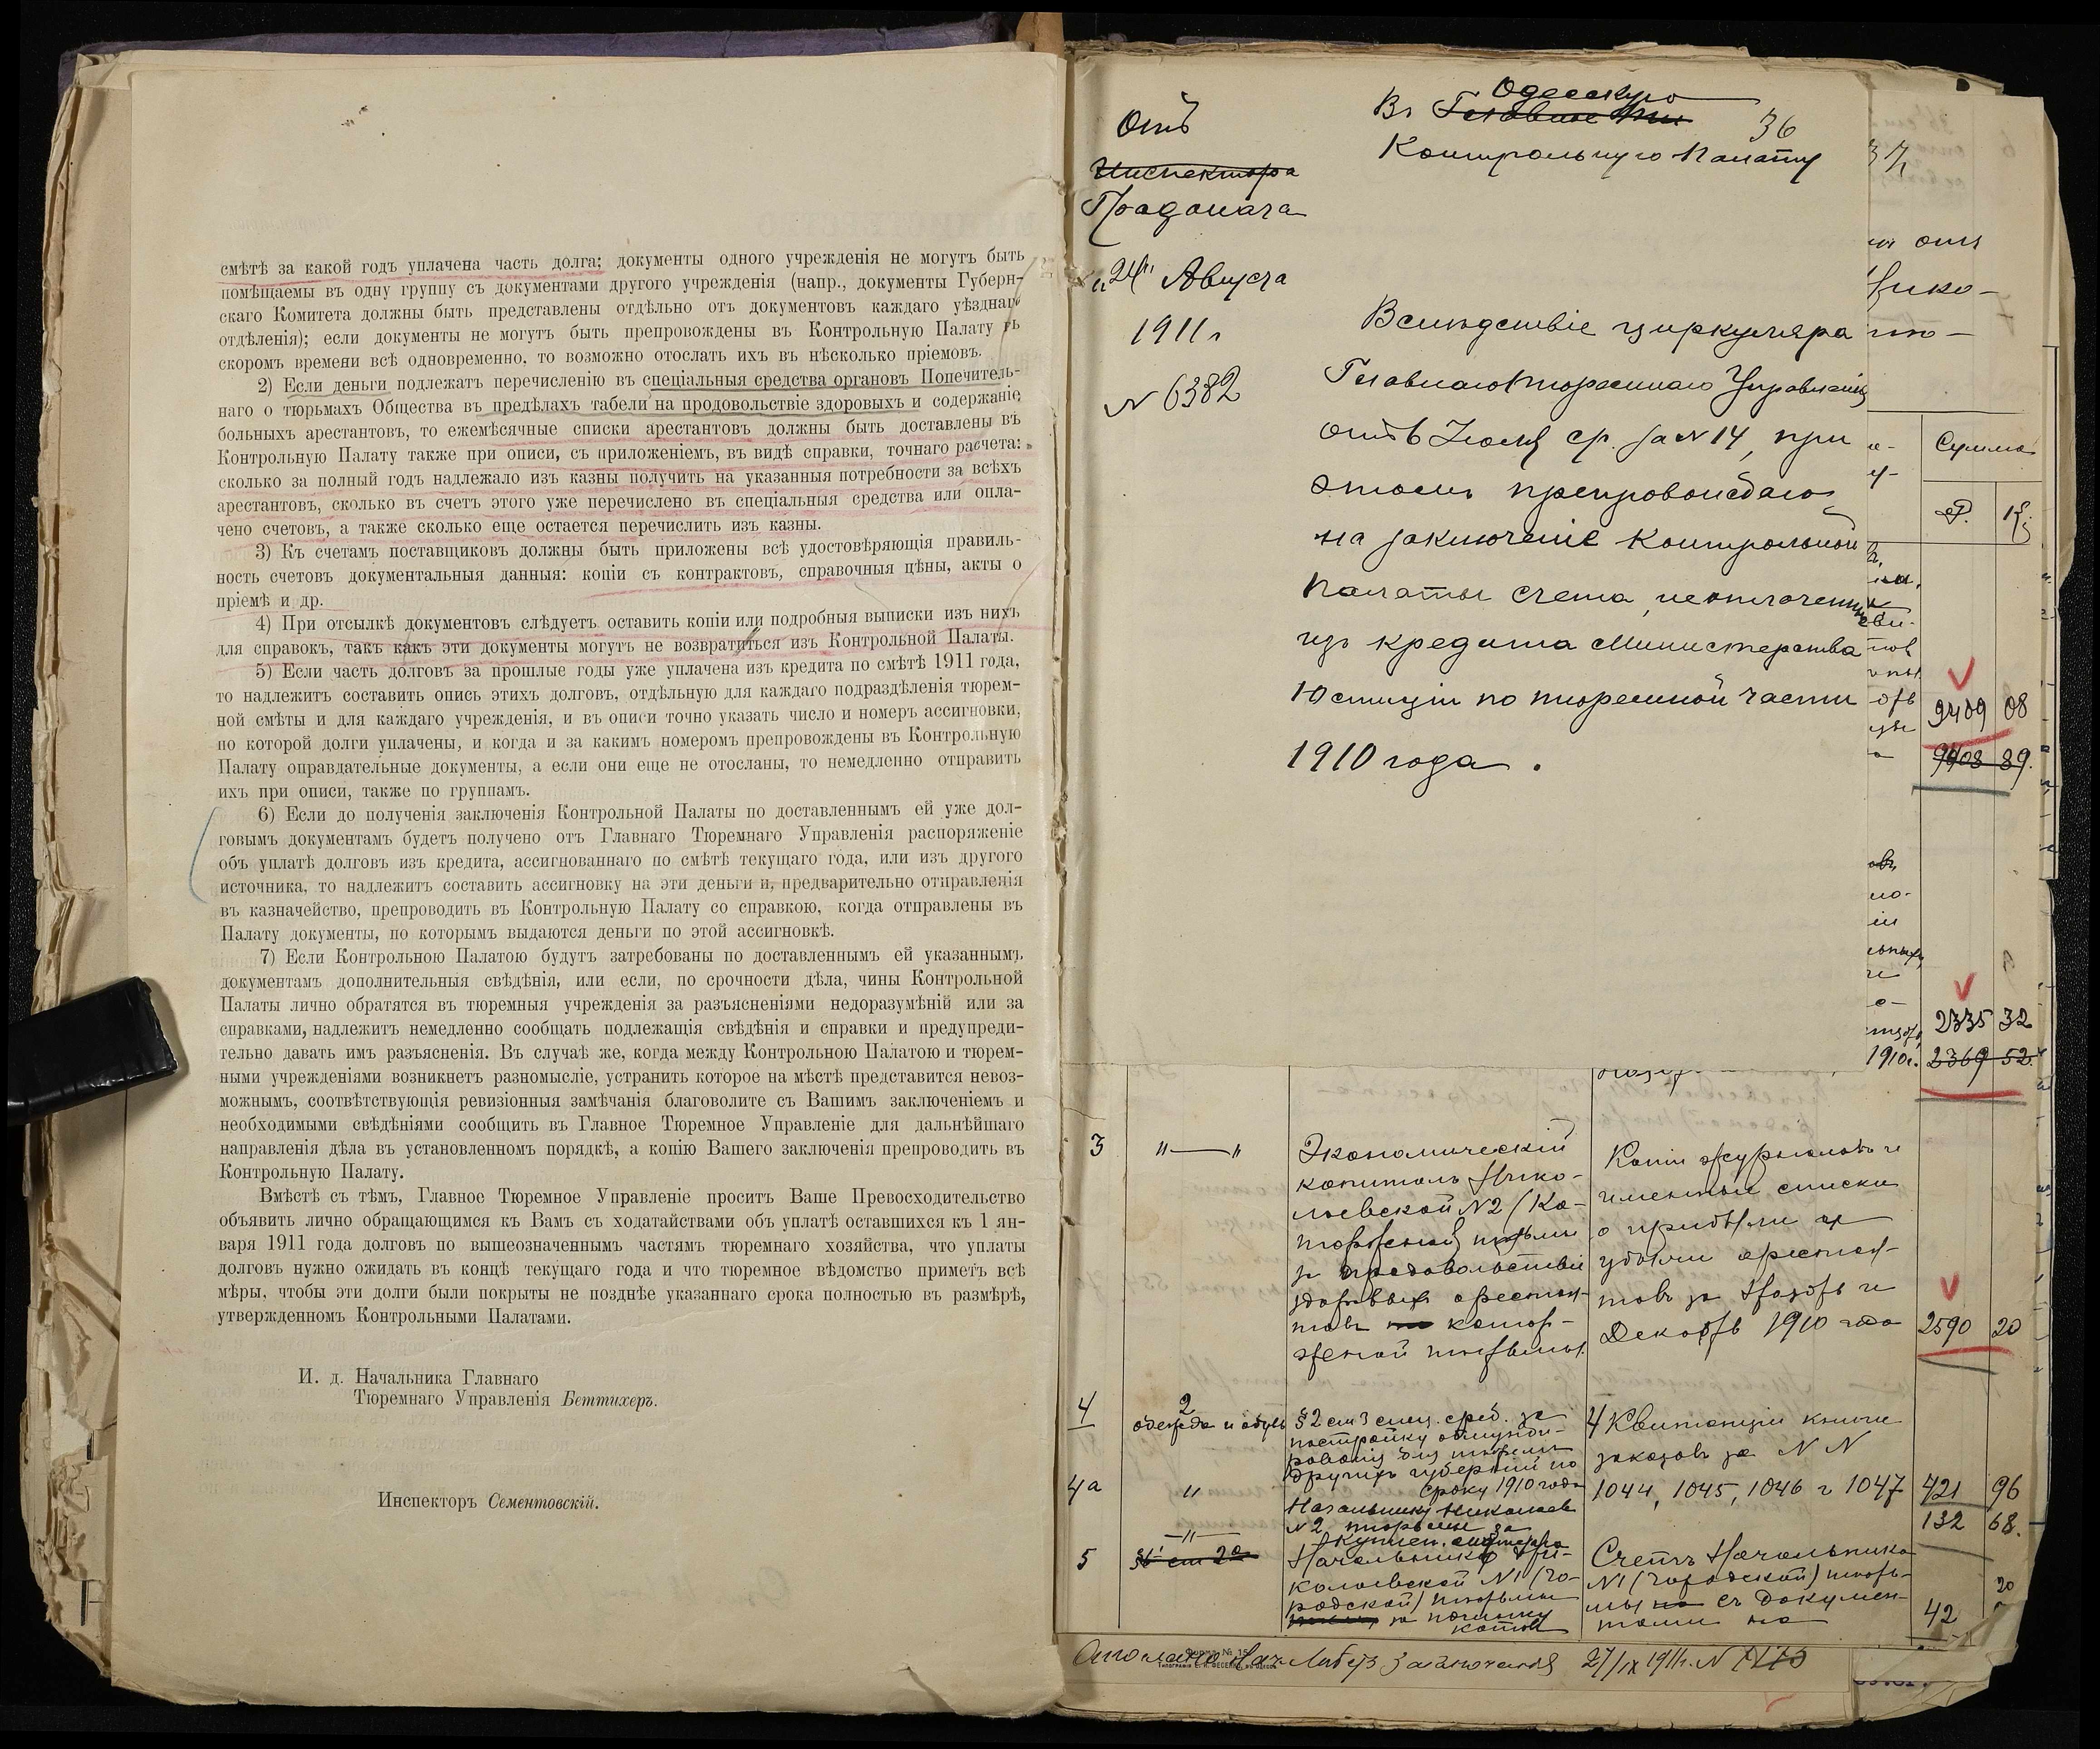 смѣтѣ за какой годъ уплачена часть долга; документы одного учрежденія не могутъ быть
помѣщаемы въ одну группу съ документами другого учрежденія (напр., документы Губерн-
скаго Комитета должны быть представлены отдѣльно отъ документовъ каждаго уѣзднаго
отдѣленія); если документы не могутъ быть препровождены въ Контрольную Палату въ
скоромъ времени всѣ одновременно, то возможно отослать ихъ въ нѣсколько пріемовъ.
2) Если деньги подлежатъ перечисленію въ спеціальныя средства органовъ Попечитель-
наго о тюрьмахъ Общества въ предѣлахъ табели на продовольствіе здоровыхъ и содержаніе
больныхъ арестантовъ, то ежемѣсячные списки арестантовъ должны быть доставлены въ
Контрольную Палату также при описи, съ приложеніемъ, въ видѣ справки, точнаго расчета:
сколько за полный годъ надлежало изъ казны получить на указанныя потребности за всѣхъ
арестантовъ, сколько въ счетъ этого уже перечислено въ спеціальныя средства или опла-
чено счетовъ, а также сколько еще остается перечислить изъ казны.
3) Къ счетамъ поставщиковъ должны быть приложены всѣ удостовѣряющія правиль-
ность счетовъ документальныя данныя: копіи съ контрактовъ, справочныя цѣны, акты о
пріемѣ и др.
4) При отсылкѣ документовъ слѣдуетъ оставить копіи или подробныя выписки изъ нихъ
для справокъ, такъ какъ эти документы могутъ не возвратиться изъ Контрольной Палаты.
5) Если часть долговъ за прошлые годы уже уплачена изъ кредита по смѣтѣ 1911 года,
то надлежитъ составить опись этихъ долговъ, отдѣльную для каждаго подраздѣленія тюрем-
ной смѣты и для каждаго учрежденія, и въ описи точно указать число и номеръ ассигновки,
по которой долги уплачены, и когда и за какимъ номеромъ препровождены въ Контрольную
Палату оправдательные документы, а если они еще не отосланы, то немедленно отправить
ихъ при описи, также по группамъ.
6) Если до полученія заключенія Контрольной Палаты по доставленнымъ ей уже дол-
говымъ документамъ будетъ получено отъ Главнаго Тюремнаго Управленія распоряженіе
объ уплатѣ долговъ изъ кредита, ассигнованнаго по смѣтѣ текущаго года, или изъ другого
источника, то надлежитъ составить ассигновку на эти деньги и, предварительно отправленія
въ казначейство, препроводить въ Контрольную Палату со справкою, когда отправлены въ
Палату документы, по которымъ выдаются деньги по этой ассигновкѣ.
7) Если Контрольною Палатою будутъ затребованы по доставленнымъ ей указаннымъ
документамъ дополнительныя свѣдѣнія, или если, по срочности дѣла, чины Контрольной
Палаты лично обратятся въ тюремныя учрежденія за разъясненіями недоразумѣній или за
справками, надлежитъ немедленно сообщать подлежащія свѣдѣнія и справки и предупреди-
тельно давать имъ разъясненія. Въ случаѣ же, когда между Контрольною Палатою и тюрем-
ными учрежденіями возникнетъ разномысліе, устранить которое на мѣстѣ представится невоз-
можнымъ, соотвѣтствующія ревизіонныя замѣчанія благоволите съ Вашимъ заключеніемъ и
необходимыми свѣдѣніями сообщить въ Главное Тюремное Управленіе для дальнѣйшаго
направленія дѣла въ установленномъ порядкѣ, а копію Вашего заключенія препроводить въ
Контрольную Палату.
Вмѣстѣ съ тѣмъ, Главное Тюремное Управленіе проситъ Ваше Превосходительство
объявить лично обращающимся къ Вамъ съ ходатайствами объ уплатѣ оставшихся къ 1 ян-
варя 1911 года долговъ по вышеозначеннымъ частямъ тюремнаго хозяйства, что уплаты
долговъ нужно ожидать въ концѣ текущаго года и что тюремное вѣдомство приметъ всѣ
мѣры, чтобы эти долги были покрыты не позднѣе указаннаго срока полностью въ размѣрѣ,
утвержденномъ Контрольными Палатами.
И. д. Начальника Главнаго
Тюремнаго Управленія Беттихеръ.
Инспекторъ Сементовскій.
Отъ
Инспектора
Градонача
"24" Августа
1911 г
N 6382
Одесскую
Въ Главное Тюр
36
Контрольную Палату
Вслѣдствіе циркуляра
Главнаго Тюремнаго Управленія
отъ 6 Іюля ср. за N 14, при
этомъ препровождаю
на заключеніе Контрольной
Палаты счета, неоплаченные
изъ кредита Министерства
Юстиціи по тюремной части
1910 года.
37
отъ
Нико-
Сумма
Р. К.
9409 08
9408 89.
2335 32
1910г. 2369 52
3 "—" Экономическій
капиталъ Нико-
лаевской N2 (Ка-
торжной) тюрьмы
за продовольствіе
здоровыхъ арестан-
товъ катор-
жной тюрьмы.
Копіи журналовъ и
именные списки
о прибыли и
убыли арестан-
товъ за Ноябрь и
Декабрь 1910 года
2590 20
4 2
одежда и обувь
§ 2 ст 3 спец. сред. за
постройку обмунди-
рованія для тюремъ
другихъ губерній по
сроку 1910 года
4 Квитанціи книги
заказовъ за N N
1044, 1045, 1046 и 1047 421 96
4а "
Начальнику Николаев
N2 тюрьмы за
132 68.
5 —"—
§6 ст 2а
Начальнику Ни-
колаевской N1 (го-
родской) тюрьмы
за починку
котловъ
Счетъ Начальника
N1 (городской) тюрь-
мы съ докумен-
тами на
42 20
Форма № 15
27/IX 1911г. N